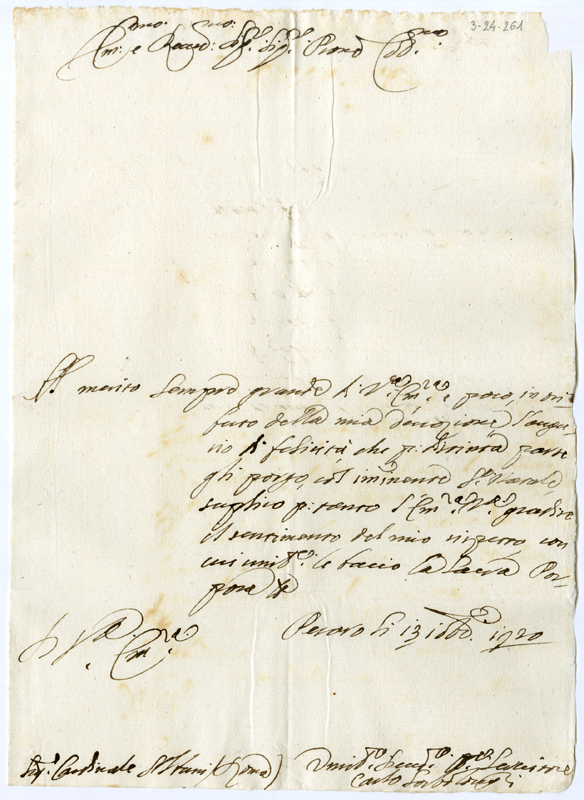 3-24-261
Em.mo e Reved.mo Sig.r Sig.r Pron Col.mo
Al merito sempre grande di V.a Em.za è poco, in tri-
buto della mia devozione, l'augu-
rio di felicità, che p: distinta parte
gli porgo, col iminente S.to Natale,
suplico p: tanto l'Em.za V.a gradire
il sentimento del mio rispetto, con
cui umil.te le bacio la Sacra Por-
pora
Di V.a Em.za
Pesaro li 13 Xbre 1720
Sig.r Cardinale (Roma)
Umil.mo Devot.mo Servitore
Carlo